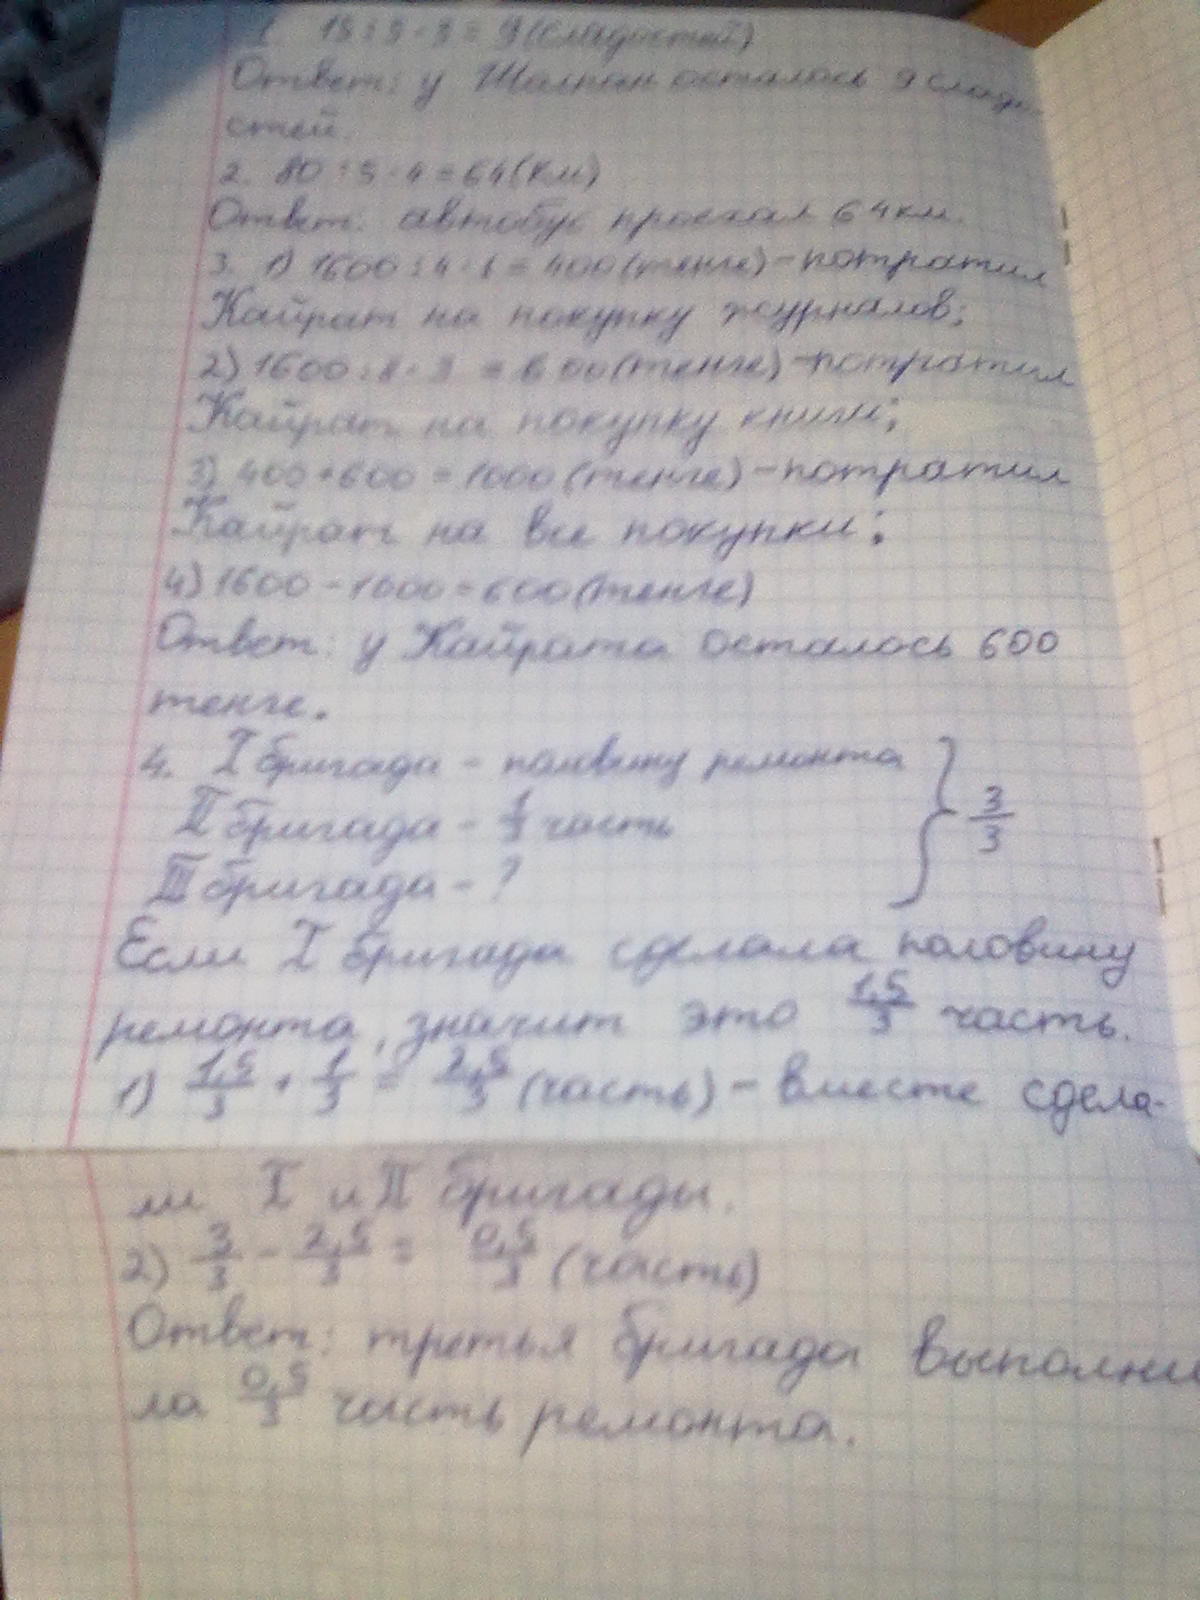 1. 15 : 5 · 3 = 9 (сладостей)
Ответ: у Шолпан осталось 9 сладо-
стей.
2. 80 : 5 · 4 = 64 (км)
Ответ: автобус проехал 64 км.
3. 1) 1600 : 4 · 1 = 400 (тенге) - потратил
Кайрат на покупку журналов;
2) 1600 : 8 · 3 = 600 (тенге) - потратил
Кайрат на покупку книги;
3) 400 + 600 = 1000 (тенге) - потратил
Кайрат на все покупки;
4) 1600 - 1000 = 600 (тенге)
Ответ: у Кайрата осталось 600
тенге.
4. I бригада - половину ремонта
II бригада - 1/3 часть } 3/3
III бригада - ?
Если I бригада сделала половину
ремонта, значит это 1,5/3 часть.
1) 1,5/3 + 1/3 = 2,5/3 (часть) - вместе сдела-
ли I и II бригады.
2) 3/3 - 2,5/3 = 0,5/3 (часть)
Ответ: третья бригада выполни
ла 0,5/3 часть ремонта.